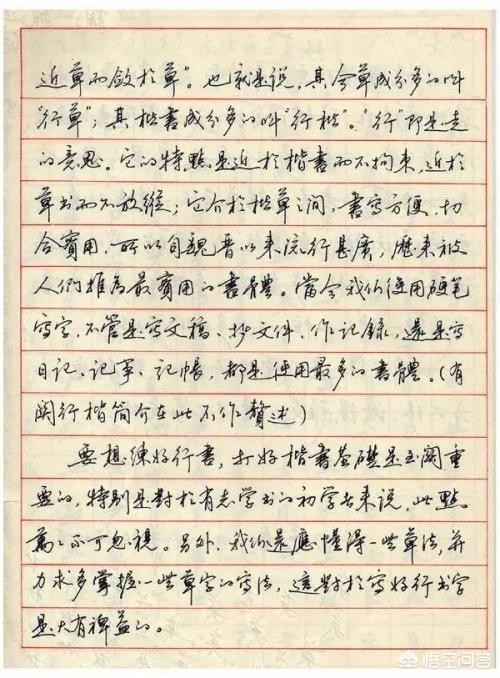 近草而敛於草”。也就是说，其含草成分多的叫
“行草”；其楷書成分多的叫“行楷”。“行”即是走
的意思。它的特點是近於楷書而不拘束，近於
草书而不放縱；它介於楷草之间，書写方便，切
合實用，所以自魏晋以来流行甚廣，歷来被
人們推為最實用的書體。當今我们使用硬笔
写字，不管是写文稿、抄文件、作记録，還是写
日记、记事、记帳，都是使用最多的書體。（有
関行楷简介在此不作贅述）
要想練好行書，打好楷書基礎是至関重
要的，特别是對於有志学书的初学者来说，此點
萬萬不可忽視。另外，我们還應懂得一些草法，并
力求多掌握一些草字的写法，這對於写好行书字
是大有裨益的。
悟空问答